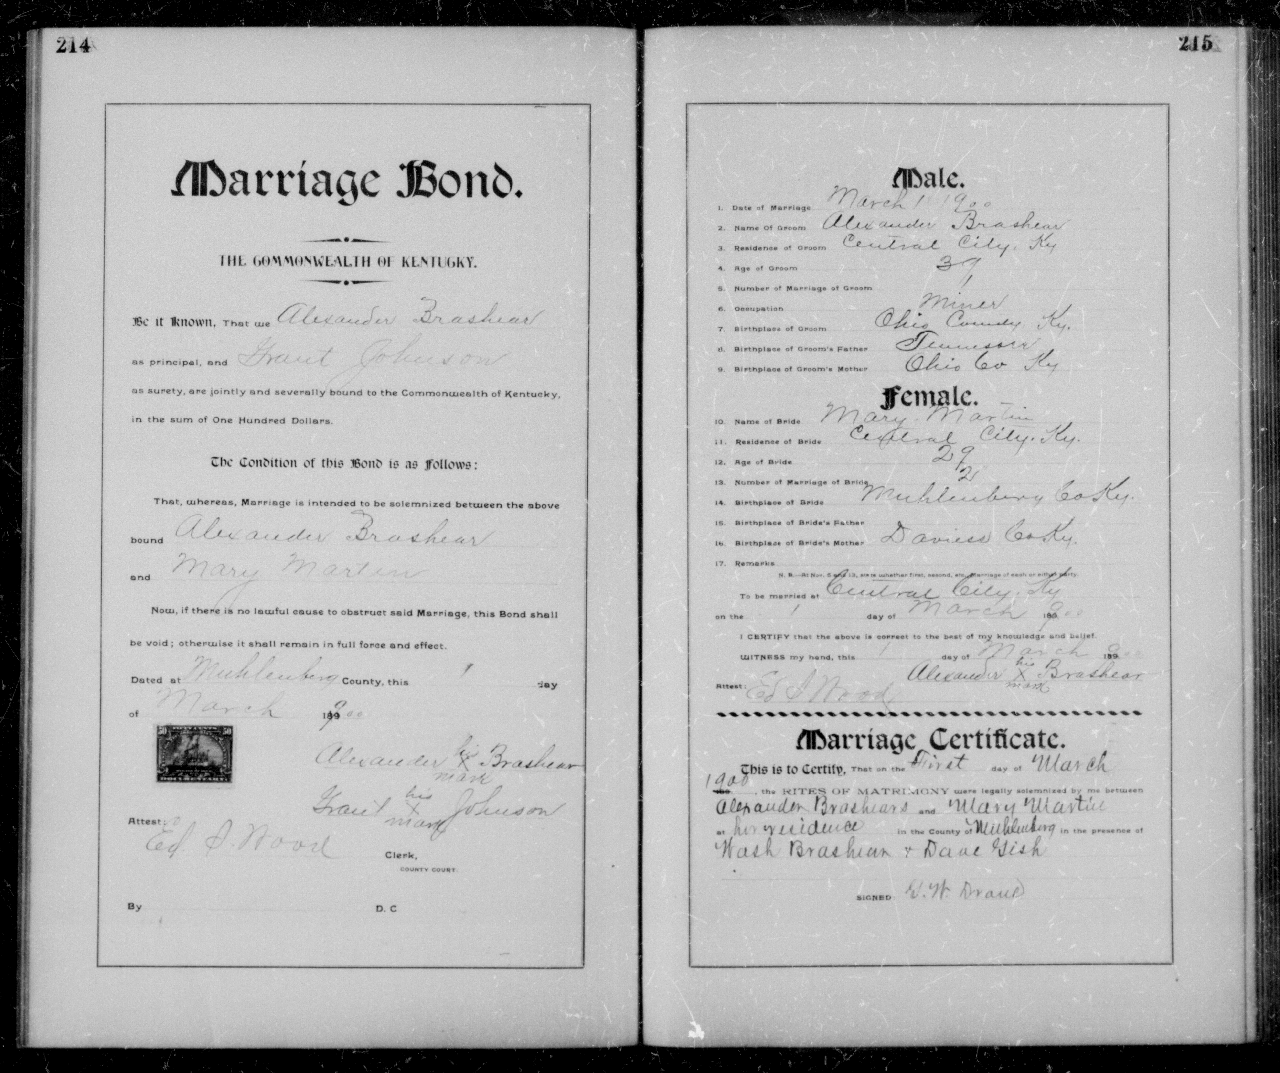 214
Marriage Bond.
THE COMMONWEALTH OF KENTUCKY.
Be it Known, That we Alexander Brashear
as principal, and Grant Johnson
as surety, are jointly and severally bound to the Commonwealth of Kentucky,
in the sum of One Hundred Dollars.
The Condition of this Bond is as Follows:
That, whereas, Marriage is intended to be solemnized between the above
bound Alexander Brashear
and Mary Martin
Now, if there is no lawful cause to obstruct said Marriage, this Bond shall
be void; otherwise it shall remain in full force and effect.
Dated at Muhlenberg County, this 1 day
of March 1900
50 50
DOCUMENTARY
Alexander his X mark Brashear
Grant his X mark Johnson
Attest:
Ed. S. Wood
Clerk,
COUNTY COURT.
By D. C
215
Male.
1. Date of Marriage March 1 1900
2. Name Of Groom Alexander Brashear
3. Residence of Groom Central City. Ky
4. Age of Groom 39
5. Number of Marriage of Groom 1
6. Occupation Miner
7. Birthplace of Groom Ohio County Ky.
8. Birthplace of Groom's Father Tennessee
9. Birthplace of Groom's Mother Ohio Co Ky
Female.
10. Name of Bride Mary Martin
11. Residence of Bride Central City. Ky.
12. Age of Bride 29
13. Number of Marriage of Bride 2
14. Birthplace of Bride Muhlenberg Co Ky.
15. Birthplace of Bride's Father
16. Birthplace of Bride's Mother Daviess Co Ky.
17. Remarks
N. B.—At Nos. 5 and 13, state whether first, second, etc., Marriage of each or either party.
To be married at Central City. Ky
on the 1 day of March 1900
I CERTIFY that the above is correct to the best of my knowledge and belief.
WITNESS my hand, this 1 day of March 1900
Alexander his X mark Brashear
Attest: Ed S Wood
Marriage Certificate.
This is to Certify, That on the First day of March
1900, the RITES OF MATRIMONY were legally solemnized by me between
Alexander Brashears and Mary Martin
at her residence in the County of Muhlenberg in the presence of
Wash Brashear & Dave Gish
SIGNED W. Drane